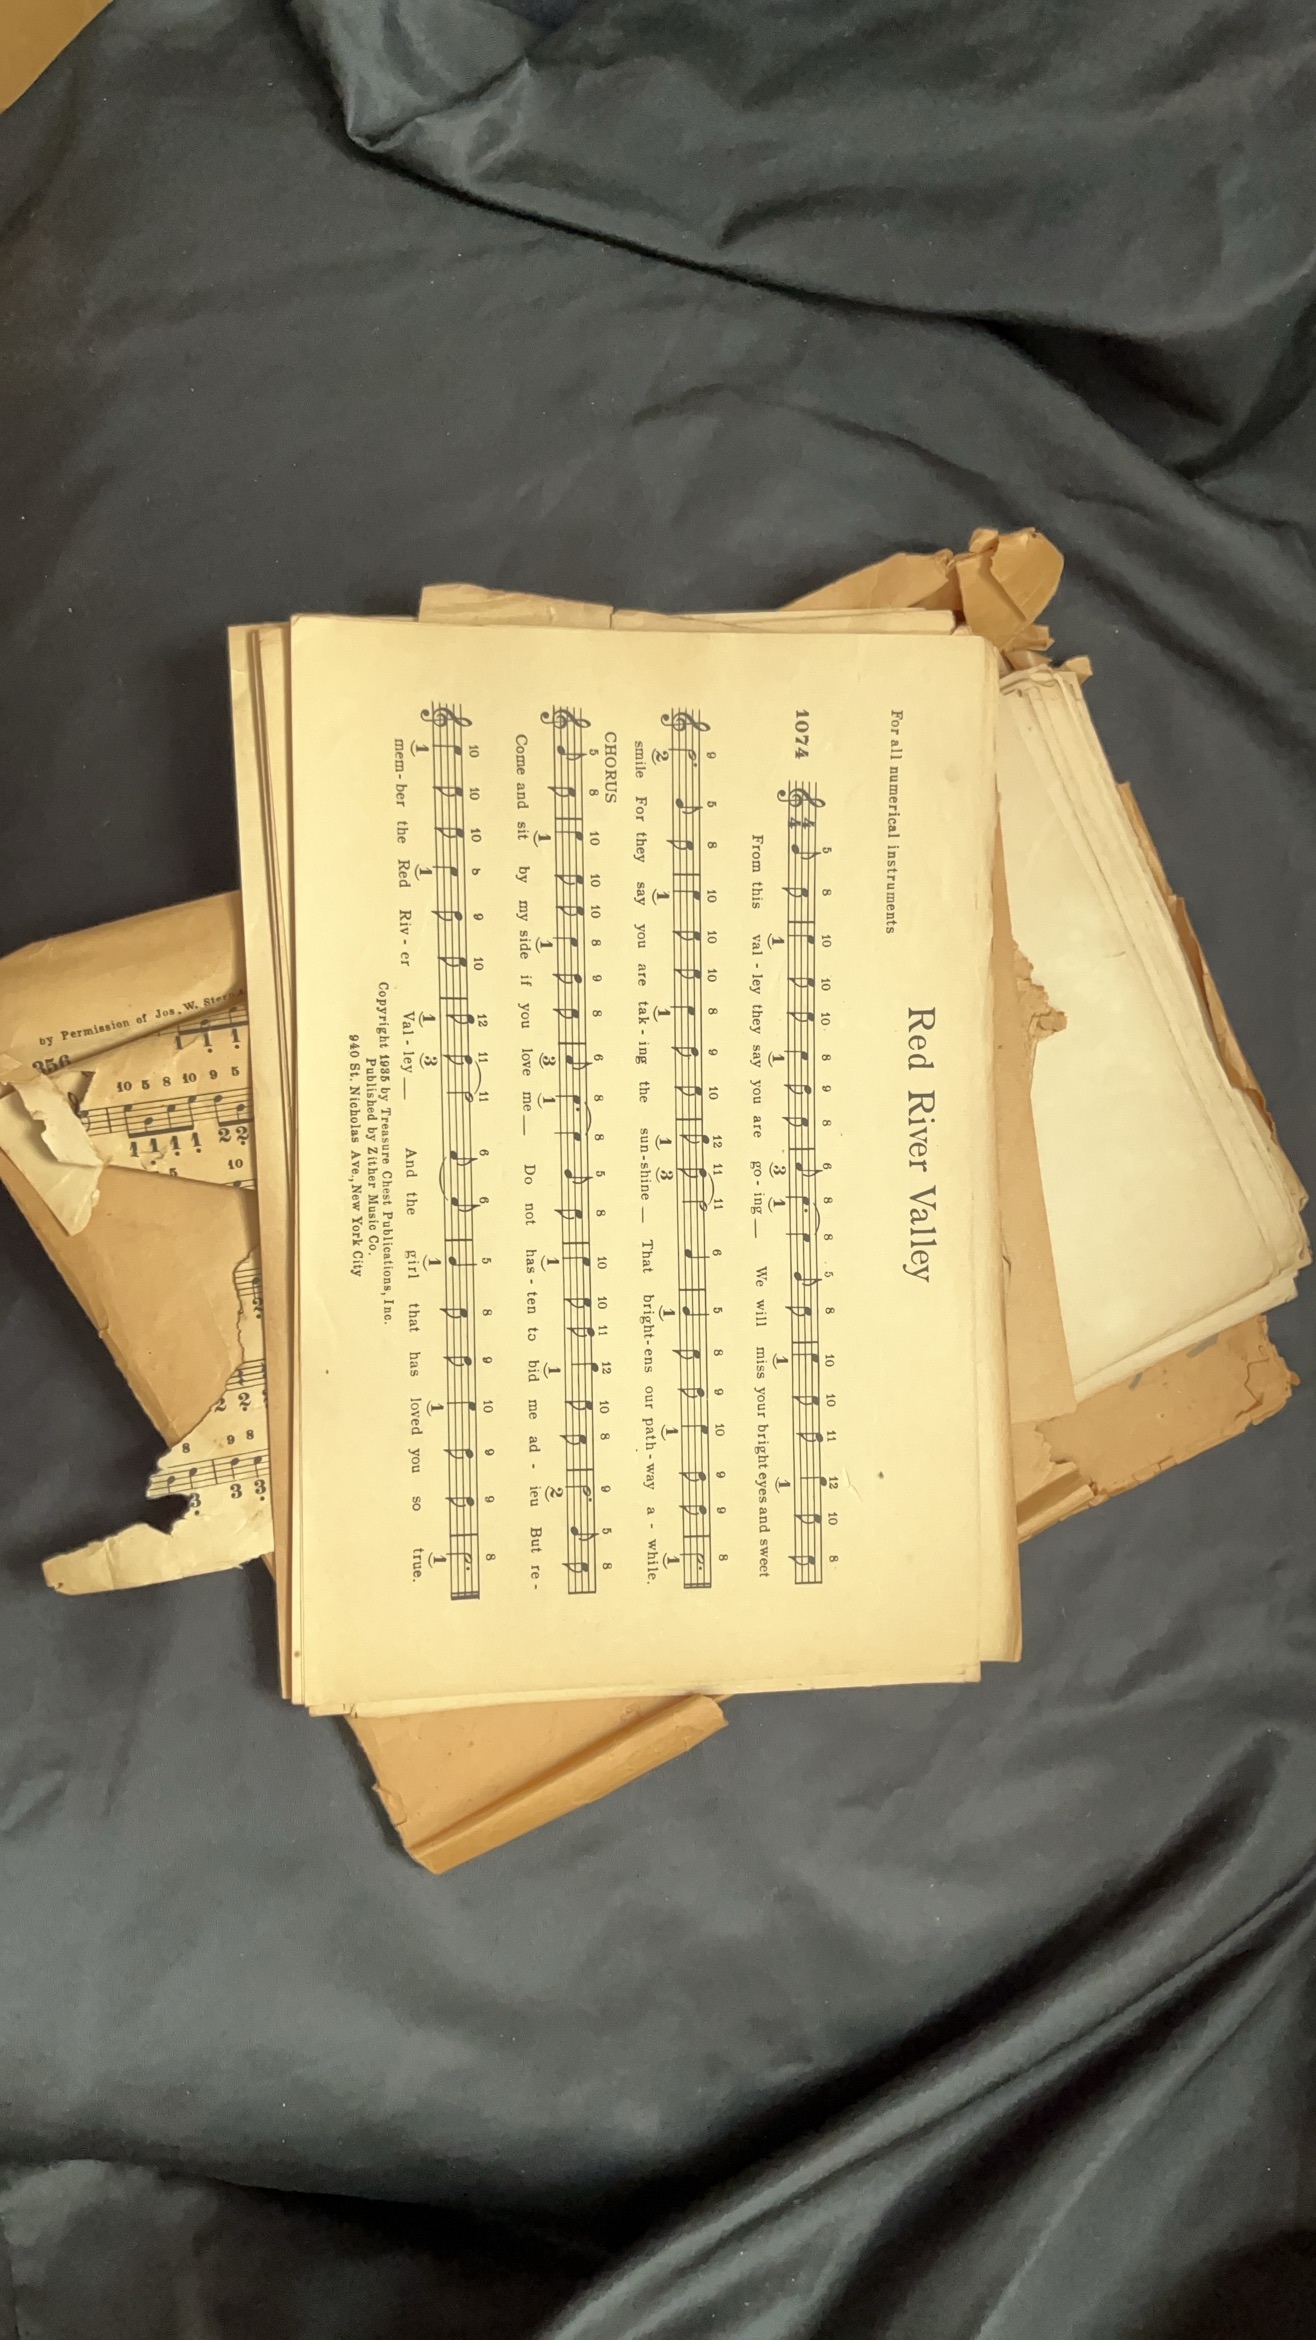 Red River Valley
For all numerical instruments
1074
5 8 10 10 10 8 9 8 6 8 8 5 8 10 10 11 12 10 8
4 4
1 1 3 1 1 1
From this val - ley they say you are go - ing We will miss your bright eyes and sweet
9 5 8 10 10 10 8 9 10 12 11 11 6 5 8 9 10 9 9 8
2 1 1 1 3 1 1 1
smile For they say you are tak - ing the sun - shine That bright - ens our path - way a - while.
CHORUS
5 8 10 10 10 8 9 8 6 8 8 5 8 10 10 11 12 10 8 9 5 8
1 1 3 1 1 1 2
Come and sit by my side if you love me Do not has - ten to bid me ad - ieu But re -
10 10 10 9 10 12 11 11 6 6 5 8 9 10 9 9 8
1 1 1 3 1 1 1
mem - ber the Red Riv - er Val - ley And the girl that has loved you so true.
Copyright 1935 by Treasure Chest Publications, Inc.
Published by Zither Music Co.
940 St. Nicholas Ave., New York City
by Permission of Jos. W.
356
10 5 8 10 9 5
1 1 1 1 2 2
10
8 9 8
3 3 3